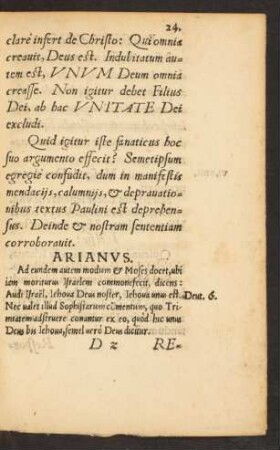 24.
clarè infert de Christo: Qui omnia
creauit, Deus est. Indubitatum au-
tem est, VNVM Deum omnia
creasse. Non igitur debet Filius
Dei, ab hac VNITATE Dei
excludi.
Quid igitur iste fanaticus hoc
suo argumento effecit? Semetipsum
egregiè confudit, dum in manifestis
mendacijs, calumnijs, & deprauatio-
nibus textus Paulini est deprehen-
sus. Deinde & nostram sententiam
corroborauit.
ARIANVS.
Ad eundem autem modum & Moses docet, ubi
iam moriturus Israelem commonefecit, dicens:
Audi Israël, Iehoua Deus noster, Iehoua unus est. Deut. 6.
Nec ualet illud Sophistarum cõmentum, quo Tri-
nitatem adstruere conantur ex eo, quòd hic unus
Deus bis Iehoua, semel uerò Deus dicitur.
D 2 RE-